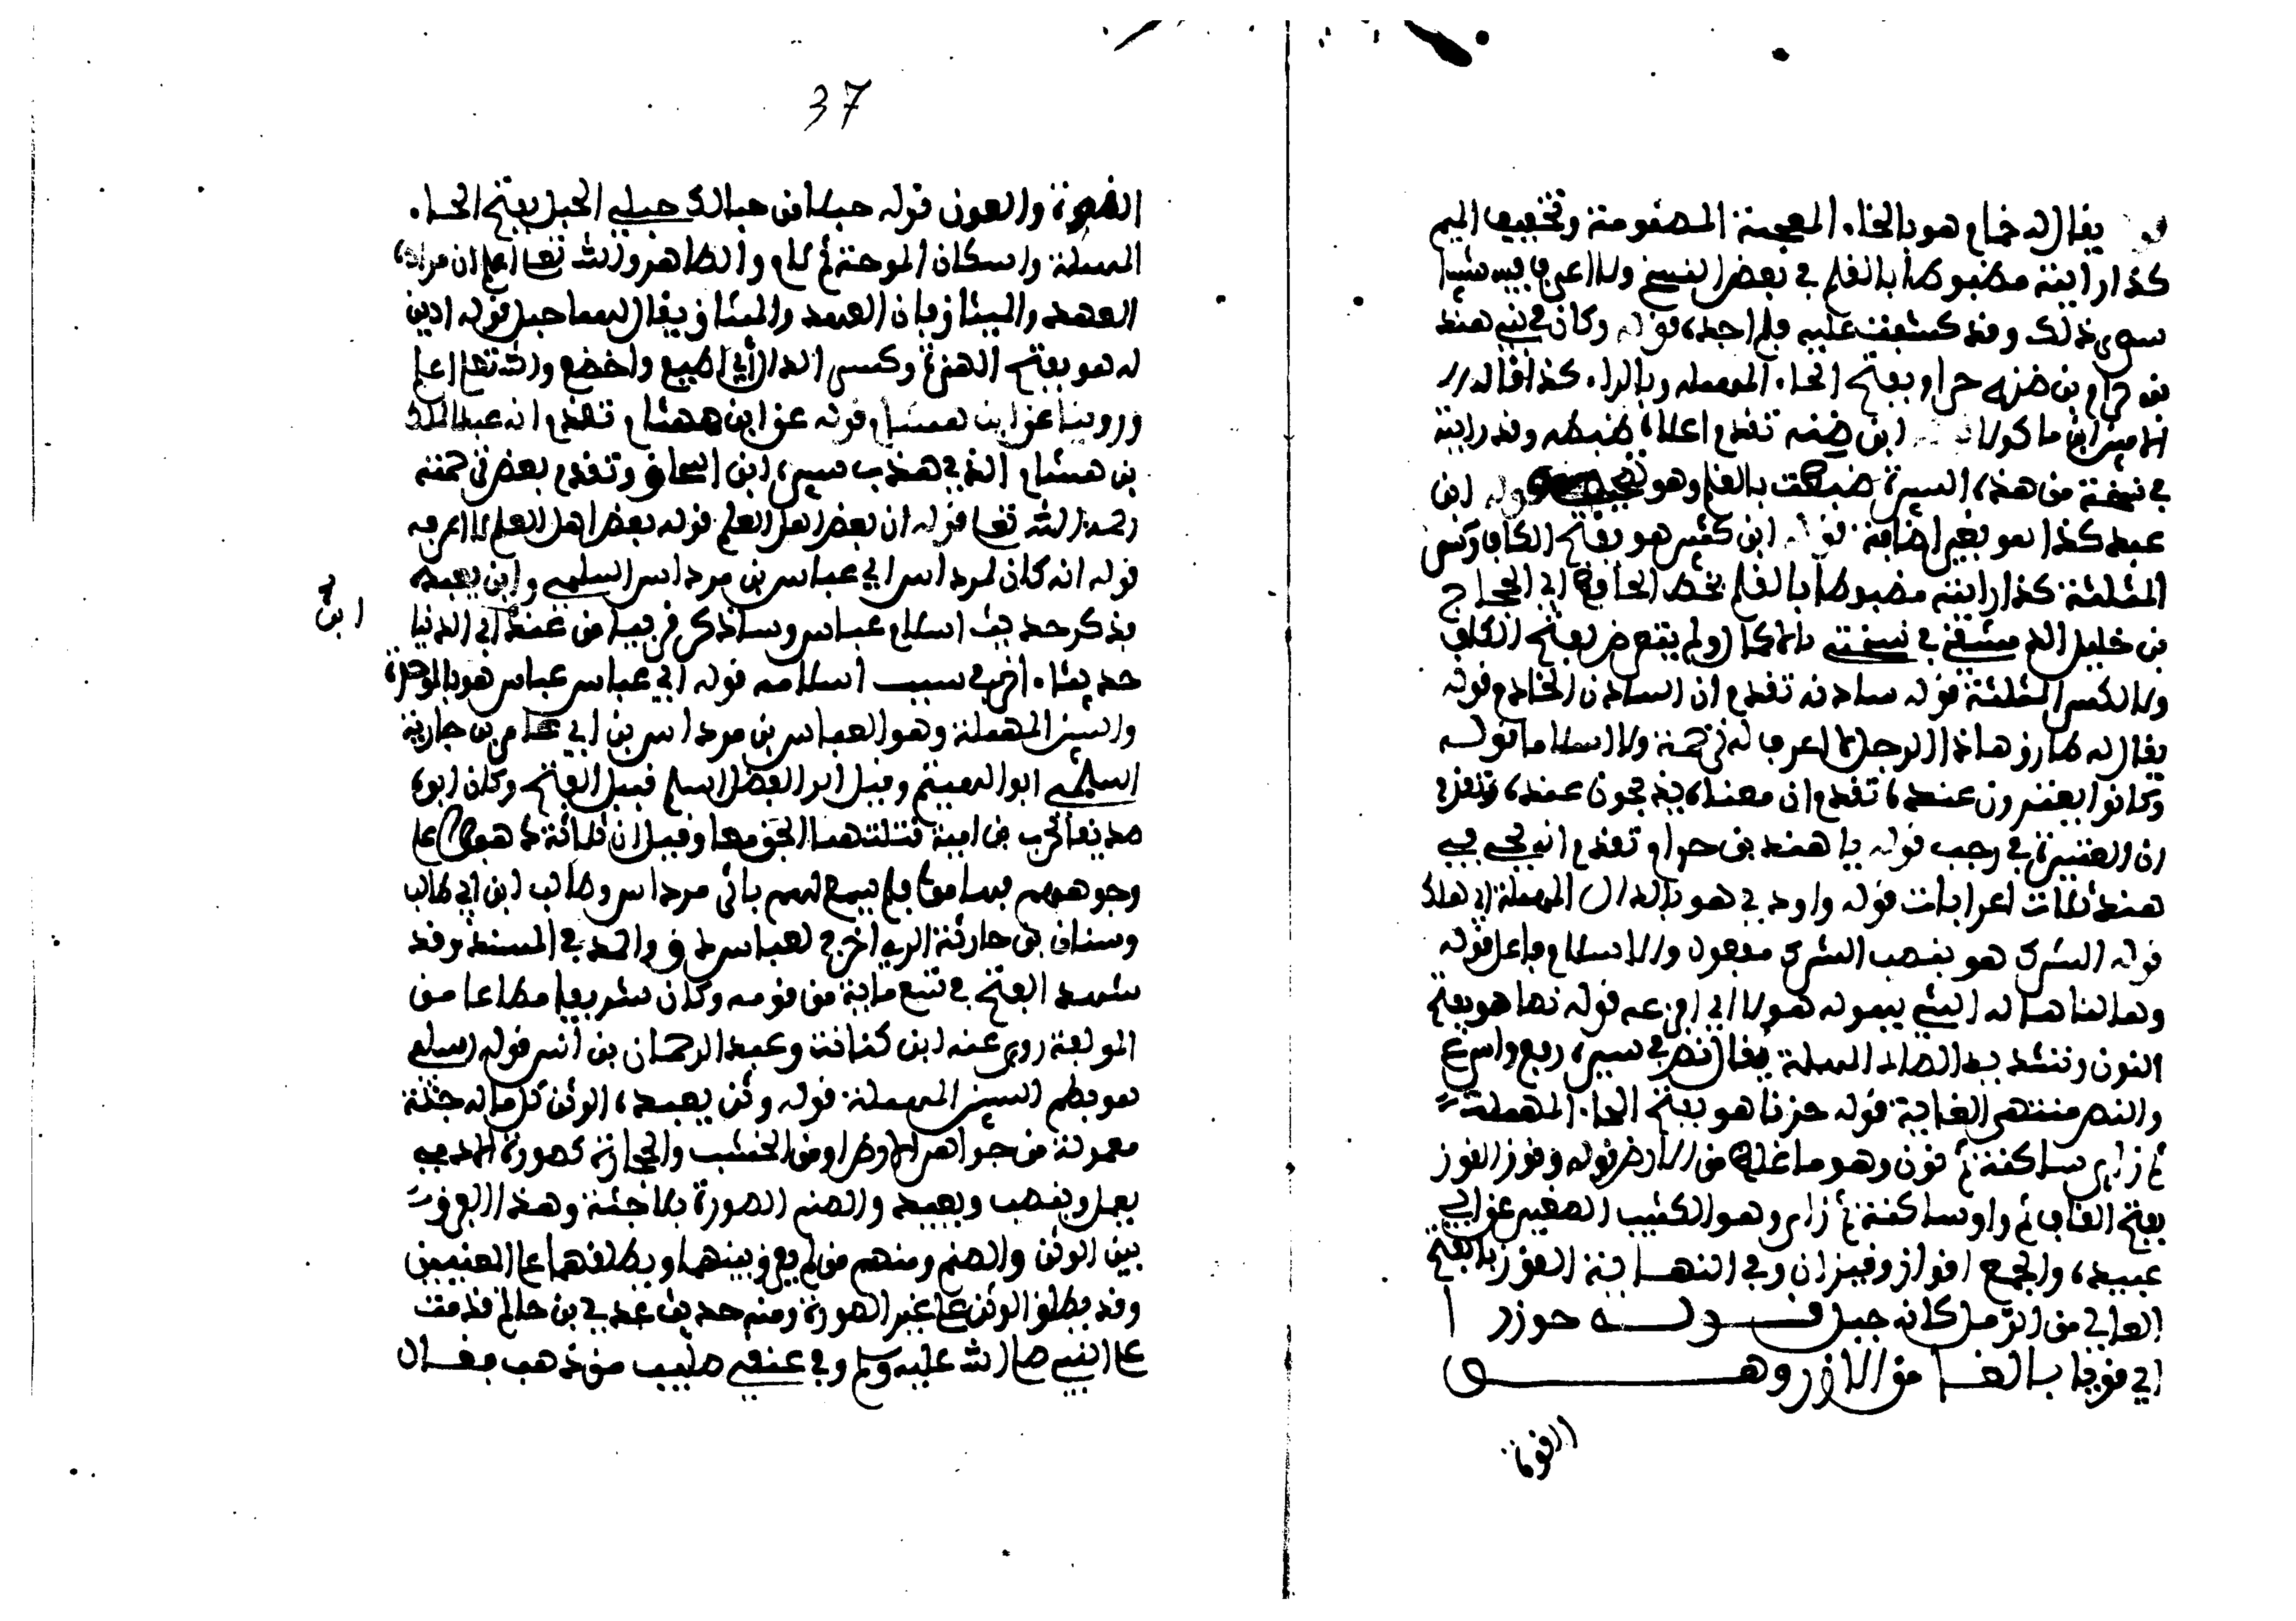 يقال له خمام هو بالخاء المعجمة المضمومة وتخفيف الميم
كذا رايته مضبوطا بالقلم في بعض النسخ ولا اعرف فيه شيئا
سوى ذلك وقد كشفت عليه فلم اجده قوله وكان في بني هند
بن حرام بن ضنه حرام بفتح الحاء المهملة وبالراء كذا قاله
الامير ابن ماكولا ابن ضنه تقدم اعلاه ضبطه وقد رايته
في نسخة من هذه السيرة ضبطت بالقلم وهو ابن
عبد كذا هو بغير اضافة قوله ابن كثير هو بفتح الكاف وكسر
المثلثة كذا رايته مضبوطا بالقلم بخط الحافظ ابي الحجاج
بن خليل الدمشقي في نسخته بالاكمال ولم يتعرض لفتح الكاف
ولا لكسر المثلثة قوله سادنه تقدم ان السادن الخادم قوله
يقال له طارق هاذا الرجل لا اعرف له ترجمة ولا اسلاما قوله
وكانوا يعترون عنده تقدم ان معناه يذبحون عنده وتقدم
ان العتيرة في رجب قوله يا هند بن حرام تقدم انه يجي في
هند ثلاث اعرابات قوله واودى هو بالدال المهملة اي هلك
قوله الشرك هو بنصب الشرك مفعول والاسلام فاعل قوله
وهالنا هاله الشي يهوله هولا اي افزعه قوله نصا هو بفتح
النون وتشديد الصاد المهملة يقال نص في سيره رفع واسرع
والنص منتهى الغاية قوله حزنا هو بفتح الحاء المهملة
ثم زاي ساكنة ثم نون وهو ما غلظ من الارض قوله وقوز القوز
بفتح القاف ثم واو ساكنة ثم زاي وهو الكثيب الصغير عن ابي
عبيده والجمع اقواز وقيزان وفي النهاية القوز بالفتح
العالي من الرمل كانه جبل قوله حوزرا
اي قويا بالغا من الازر وهو
القوة
37
النصرة والعون قوله حبلا من حبالك حبلي الحبل بفتح الحاء
المهملة واسكان الموحدة ثم لام والظاهر والله تعا اعلم ان مراده
العهد والميثاق فان العهد والميثاق يقال لهما حبل قوله ادين
له هو بفتح الهمزة وكسر الدال اي اطيع واخضع والله تعا اعلم
وروينا عن ابن هشام قوله عن ابن هشام تقدم انه عبد الملك
بن هشام الذي هذب سيرة ابن اسحاق وتقدم بعض ترجمته
رحمه الله تعا قوله ان بعض اهل العلم قوله بعض اهل العلم لا اعرفه
قوله انه كان لمرداس ابي عباس بن مرداس السلمي وثن يعبده
فذكر حديث اسلام عباس وساذكر قريبا من عند ابي الدنيا
ابن
حديثا اخر في سبب اسلامه قوله ابي عباس عباس هو بالموحدة
والسين المهملة وهو العباس بن مرداس بن ابي عامر بن جارية
السلمي ابو الهيثم وقيل ابو الفضل اسلم قبيل الفتح وكان ابوه
صديقا لحرب بن امية قتلتهما الجن معا وقيل ان ثلاثة ذهبوا على
وجوههم فهاموا فلم يسمع لهم باثر مرداس وطالب ابن ابي طالب
وسنان بن حارثة المري اخرج لعباس د ق واحمد في المسند وقد
شهد الفتح في تسع ماية من قومه وكان شريفا مطاعا من
المولفة روى عنه ابن كنانة وعبد الرحمان بن انس قوله اسلم
هو بضم السين المهملة قوله وثن يعبده الوثن كل ما له جثة
معمولة من جواهر الارض او من الخشب والحجارة كصورة الادمي
يعمل وينصب ويعبد والصنم الصورة بلا جثة وهذا الفرق
بين الوثن والصنم ومنهم من لم يفرق بينهما ويطلقهما على المعنيين
وقد يطلق الوثن على غير الصورة ومنه حديث عدي بن حاتم قدمت
على النبي صلى الله عليه وسلم وفي عنقي صليب من ذهب فقال